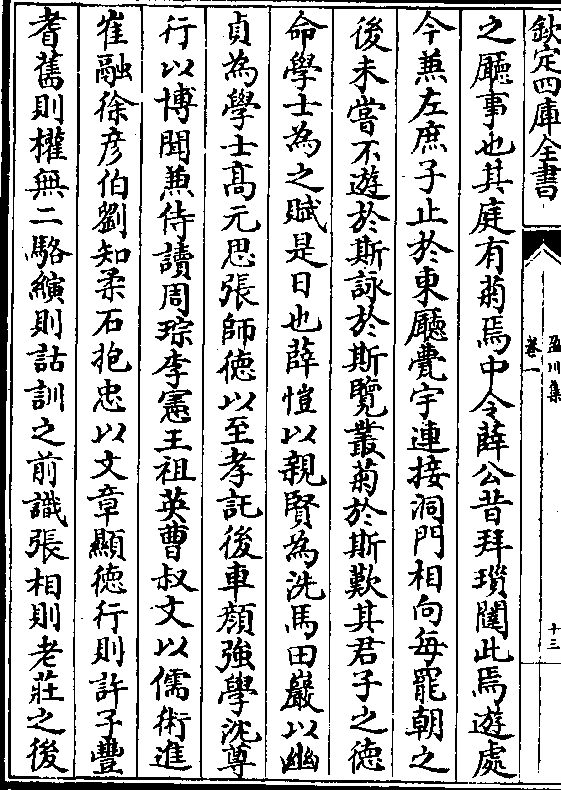 欽定四庫全書
盈川集
卷一
十三
之廳事也其庭有菊焉中令薛公昔拜瑣闥此焉遊處
今兼左庶子止於東廳甍宇連接洞門相向每罷朝之
後未嘗不遊於斯詠於斯覽叢菊於斯歎其君子之德
命學士為之賦是日也薛愷以親賢為洗馬田巖以幽
貞為學士髙元思張師徳以至孝託後車顏強學沈尊
行以博聞兼侍讀周琮李憲王祖英曹叔文以儒術進
崔融徐彦伯劉知柔石抱忠以文章顯徳行則許子豐
耆舊則權無二駱縯則詁訓之前識張相則老莊之後